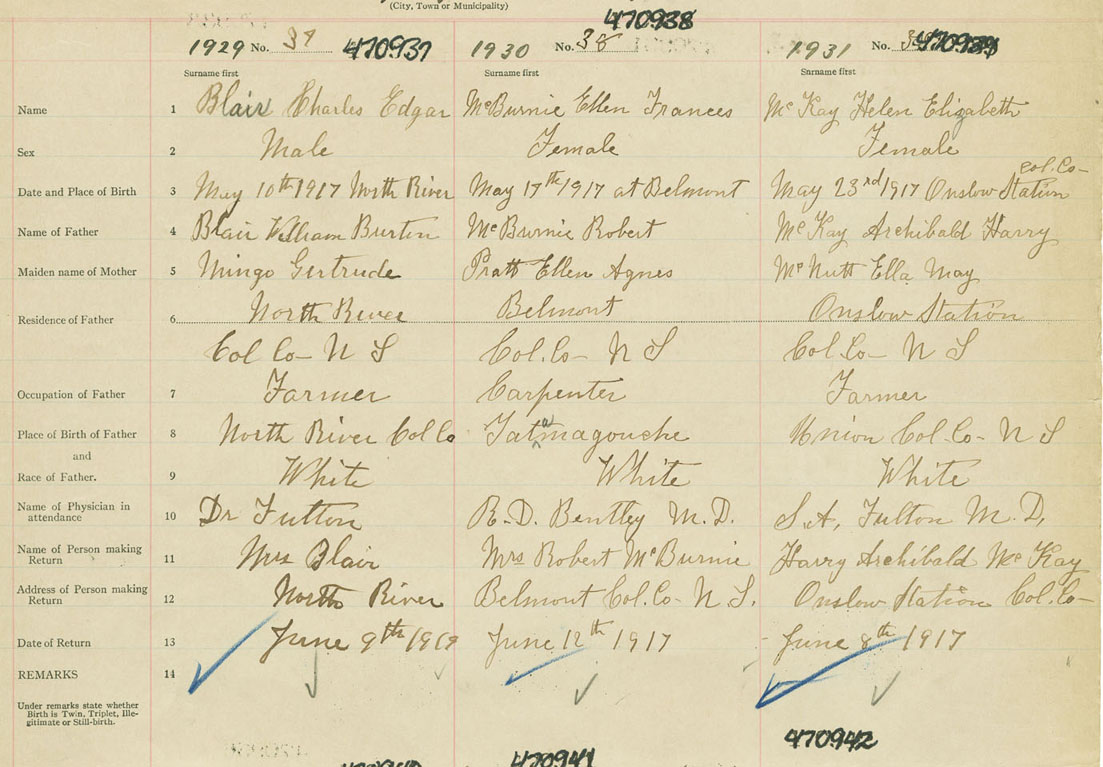 (City, Town or Municipality)
470938
1929 No. 37 470937 1930 No. 38 1931 No. 470939
Surname first Surname first Surname first
Name 1 Blair Charles Edgar McBurnie Ellen Frances McKay Helen Elizabeth
Sex 2 Male Female Female
Col. Co-
Date and Place of Birth 3 May 10th 1917 North River May 17th 1917 at Belmont May 23rd 1917 Onslow Station
Name of Father 4 Blair William Burton McBurnie Robert McKay Archibald Harry
Maiden name of Mother 5 Mingo Gertrude Pratt Ellen Agnes McNutt Ella May
Residence of Father 6 North River Belmont Onslow Station
Col Co- N S Col. Co- N S Col. Co- N S
Occupation of Father 7 Farmer Carpenter Farmer
Place of Birth of Father 8 North River Col Co Tatamagouche Union Col. Co- N S
and
Race of Father. 9 White White White
Name of Physician in attendance 10 Dr Fulton R. D. Bentley M. D. S. A. Fulton M. D.
Name of Person making Return 11 Mrs Blair Mrs Robert McBurnie Harry Archibald McKay
Address of Person making Return 12 North River Belmont Col. Co- N S. Onslow Station Col. Co-
Date of Return 13 June 9th June 12th 1917 June 8th 1917
REMARKS 14
Under remarks state whether
Birth is Twin, Triplet, Ille-
gitimate or Still-birth.
470942
470941